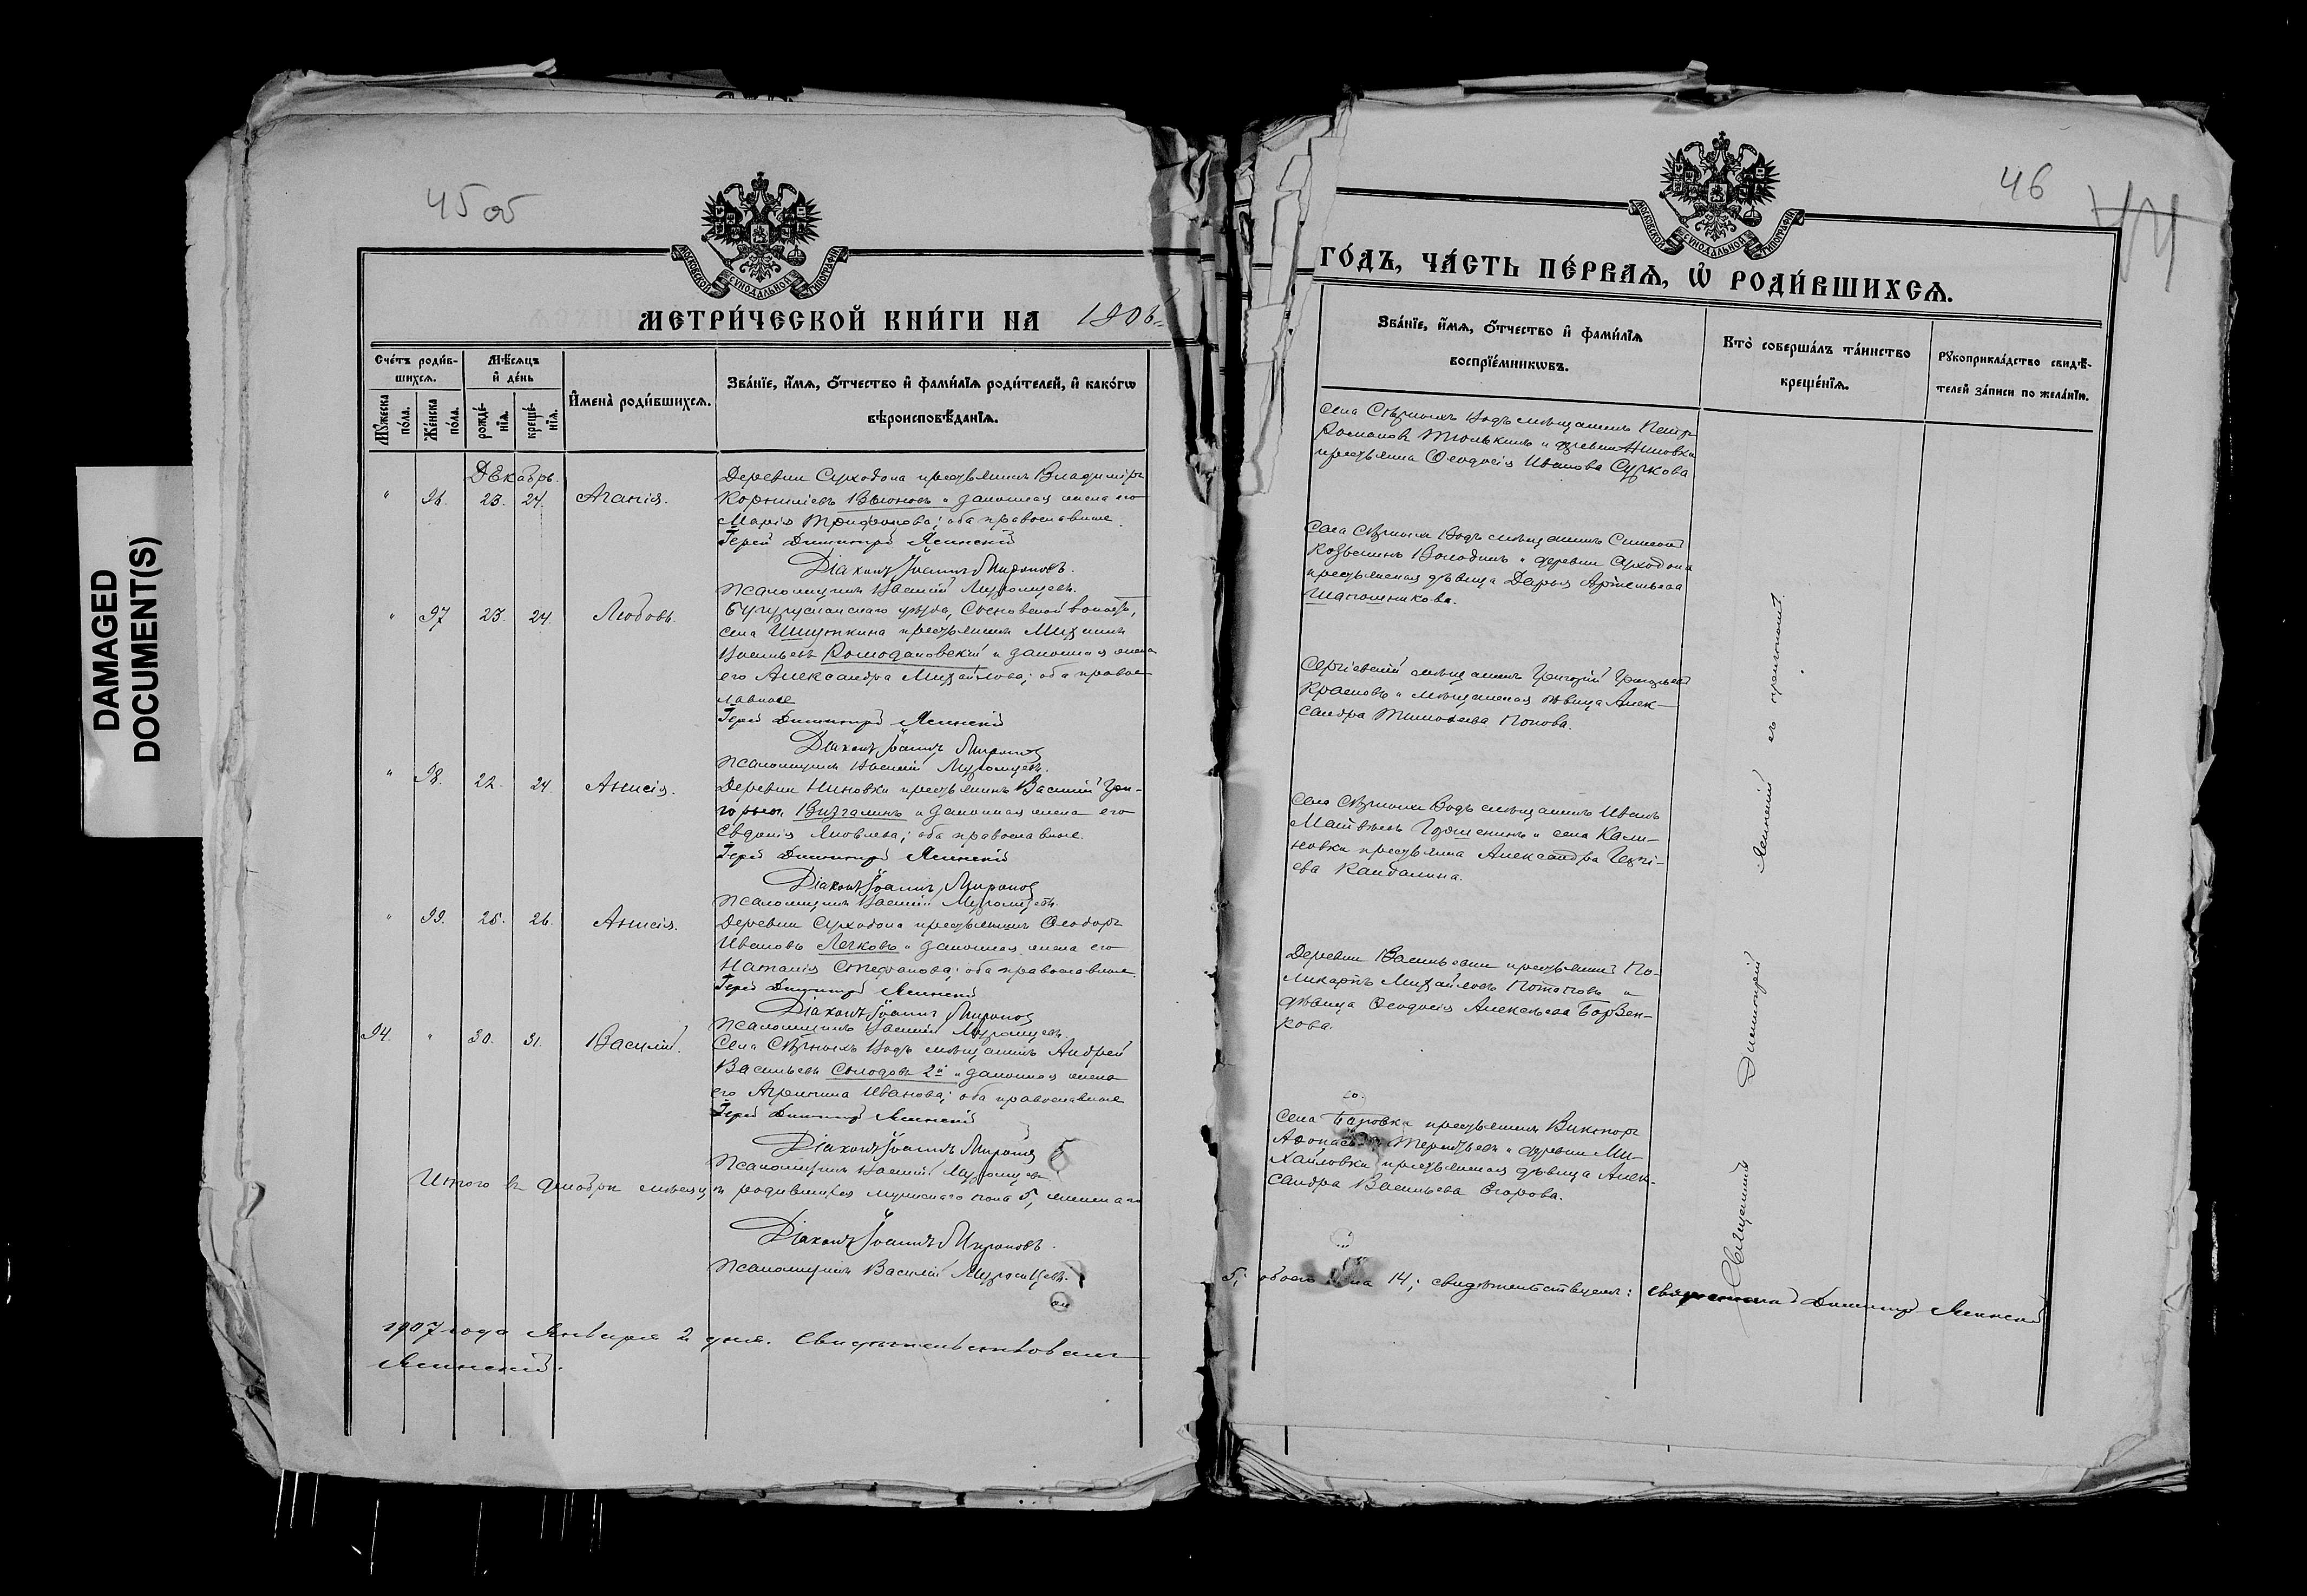 DAMAGED
DOCUMENT(S)
45 об
МОСКОВСКОЙ СѴНОДАЛЬНОЙ ТИПОГРАФІИ
МЕТРИ́ЧЕСКОЙ КНИ́ГИ НА 1906
Сче́тъ роди́в-
шихся.
Мѣ́сяцъ
и҆ де́нь
Му́жеска по́ла.
Же́нска по́ла.
рожде́-
нїя.
креще́-
нїя.
И҆мена̀ роди́вшихся.
Зва́нїе, и҆́мя, ѻ҆́тчество и҆ фами́лїя роди́телей, и҆ како́гѡ
вѣроисповѣ́данїя.
Декабрь.
" 96. 23. 24. Агапія.
Деревни Суходола крестьянинъ Владиміръ
Корниліевъ Вьюновъ и законная жена его
Марія Трифонова; оба православные.
Іерей Димитрій Ясинскій
Діаконъ Іоаннъ Мироновъ.
Псаломщикъ Василій Муромцевъ.
" 97 23. 24. Любовь.
Бугурусланскаго уѣзда, Сосновской волости,
села Шишткина крестьянинъ Михаилъ
Васильевъ Ромодановскій и законная жена
его Александра Михайлова; оба правос
лавные
Іерей Димитрій Ясинскій
Діаконъ Іоаннъ Мироновъ
Псаломщикъ Василій Муромцевъ.
" 98. 22. 24. Анисія.
Деревни Ниновки крестьянинъ Василій Гри-
горьевъ Визгалинъ и законная жена его
Евдокія Яковлева; оба православные.
Іерей Димитрій Ясинскій
Діаконъ Іоаннъ Мироновъ
Псаломщикъ Василій Муромцевъ.
" 99. 25. 26. Анисія.
Деревни Суходола крестьянинъ Ѳеодоръ
Ивановъ Лечковъ и законная жена его
Наталія Стефанова; оба православные.
Іерей Димитрій Ясинскій
Діаконъ Іоаннъ Мироновъ
Псаломщикъ Василій Муромцевъ.
94. " 30. 31. Василій.
Села Сѣрныхъ Водъ мѣщанинъ Андрей
Васильевъ Солодовъ 2й и законная жена
его Агрипина Иванова; оба православные
Іерей Димитрій Ясинскій
Діаконъ Іоаннъ Мироновъ
Псаломщикъ Василій Муромцевъ
Итого въ декабрѣ мѣсяцѣ родившихся мужескаго пола 5, женскаго
Діаконъ Іоаннъ Мироновъ.
Псаломщикъ Василій Муромцевъ.
1907 года Января 2 дня. Свидѣтельствовалъ
Ясинскій.
46
44
МОСКОВСКОЙ СѴНОДАЛЬНОЙ ТИПОГРАФІИ
ГО́ДЪ, ЧА́СТЬ ПЕ́РВАЯ, Ѽ РОДИ́ВШИХСЯ.
Зва́нїе, и҆́мя, ѻ҆́тчество и҆ фами́лїя
воспрїе́мникѡвъ.
Кто̀ соверша́лъ та́инство
креще́нїя.
Рукоприкла́дство свидѣ́-
телей за́писи по жела́нїю.
Села Сѣрныхъ Водъ мѣщанинъ Петръ
Романовъ Тюлькинъ и деревни Ниновки
крестьянка Ѳеодосія Иванова Суркова
Села Сѣрныхъ Водъ мѣщанинъ Симеонъ
Козьминъ Володинъ и деревни Суходола
крестьянская дѣвица Дарья Артемьева
Шапошникова.
Сергіевскій мѣщанинъ Григорій Григорьевъ
Красновъ и мѣщанская дѣвица Алек-
сандра Тимоѳеева Попова.
Села Сѣрныхъ Водъ мѣщанинъ Иванъ
Матвѣевъ и села Кали-
новки крестьянка Александра
ева Кандалина.
Деревни Васильевки крестьянинъ По-
ликарпъ Михайловъ Потаповъ и
дѣвица Ѳеодосія Алексѣева Борзен-
кова.
Села крестьянинъ Викторъ
Терентьевъ и деревни Ми-
хайловки крестьянская дѣвица Алек-
сандра Васильева Егорова.
Священникъ Димитрій Ясинскій
5; обоего пола 14; свидѣтельствуемъ: Священникъ Димитрій Ясинскій